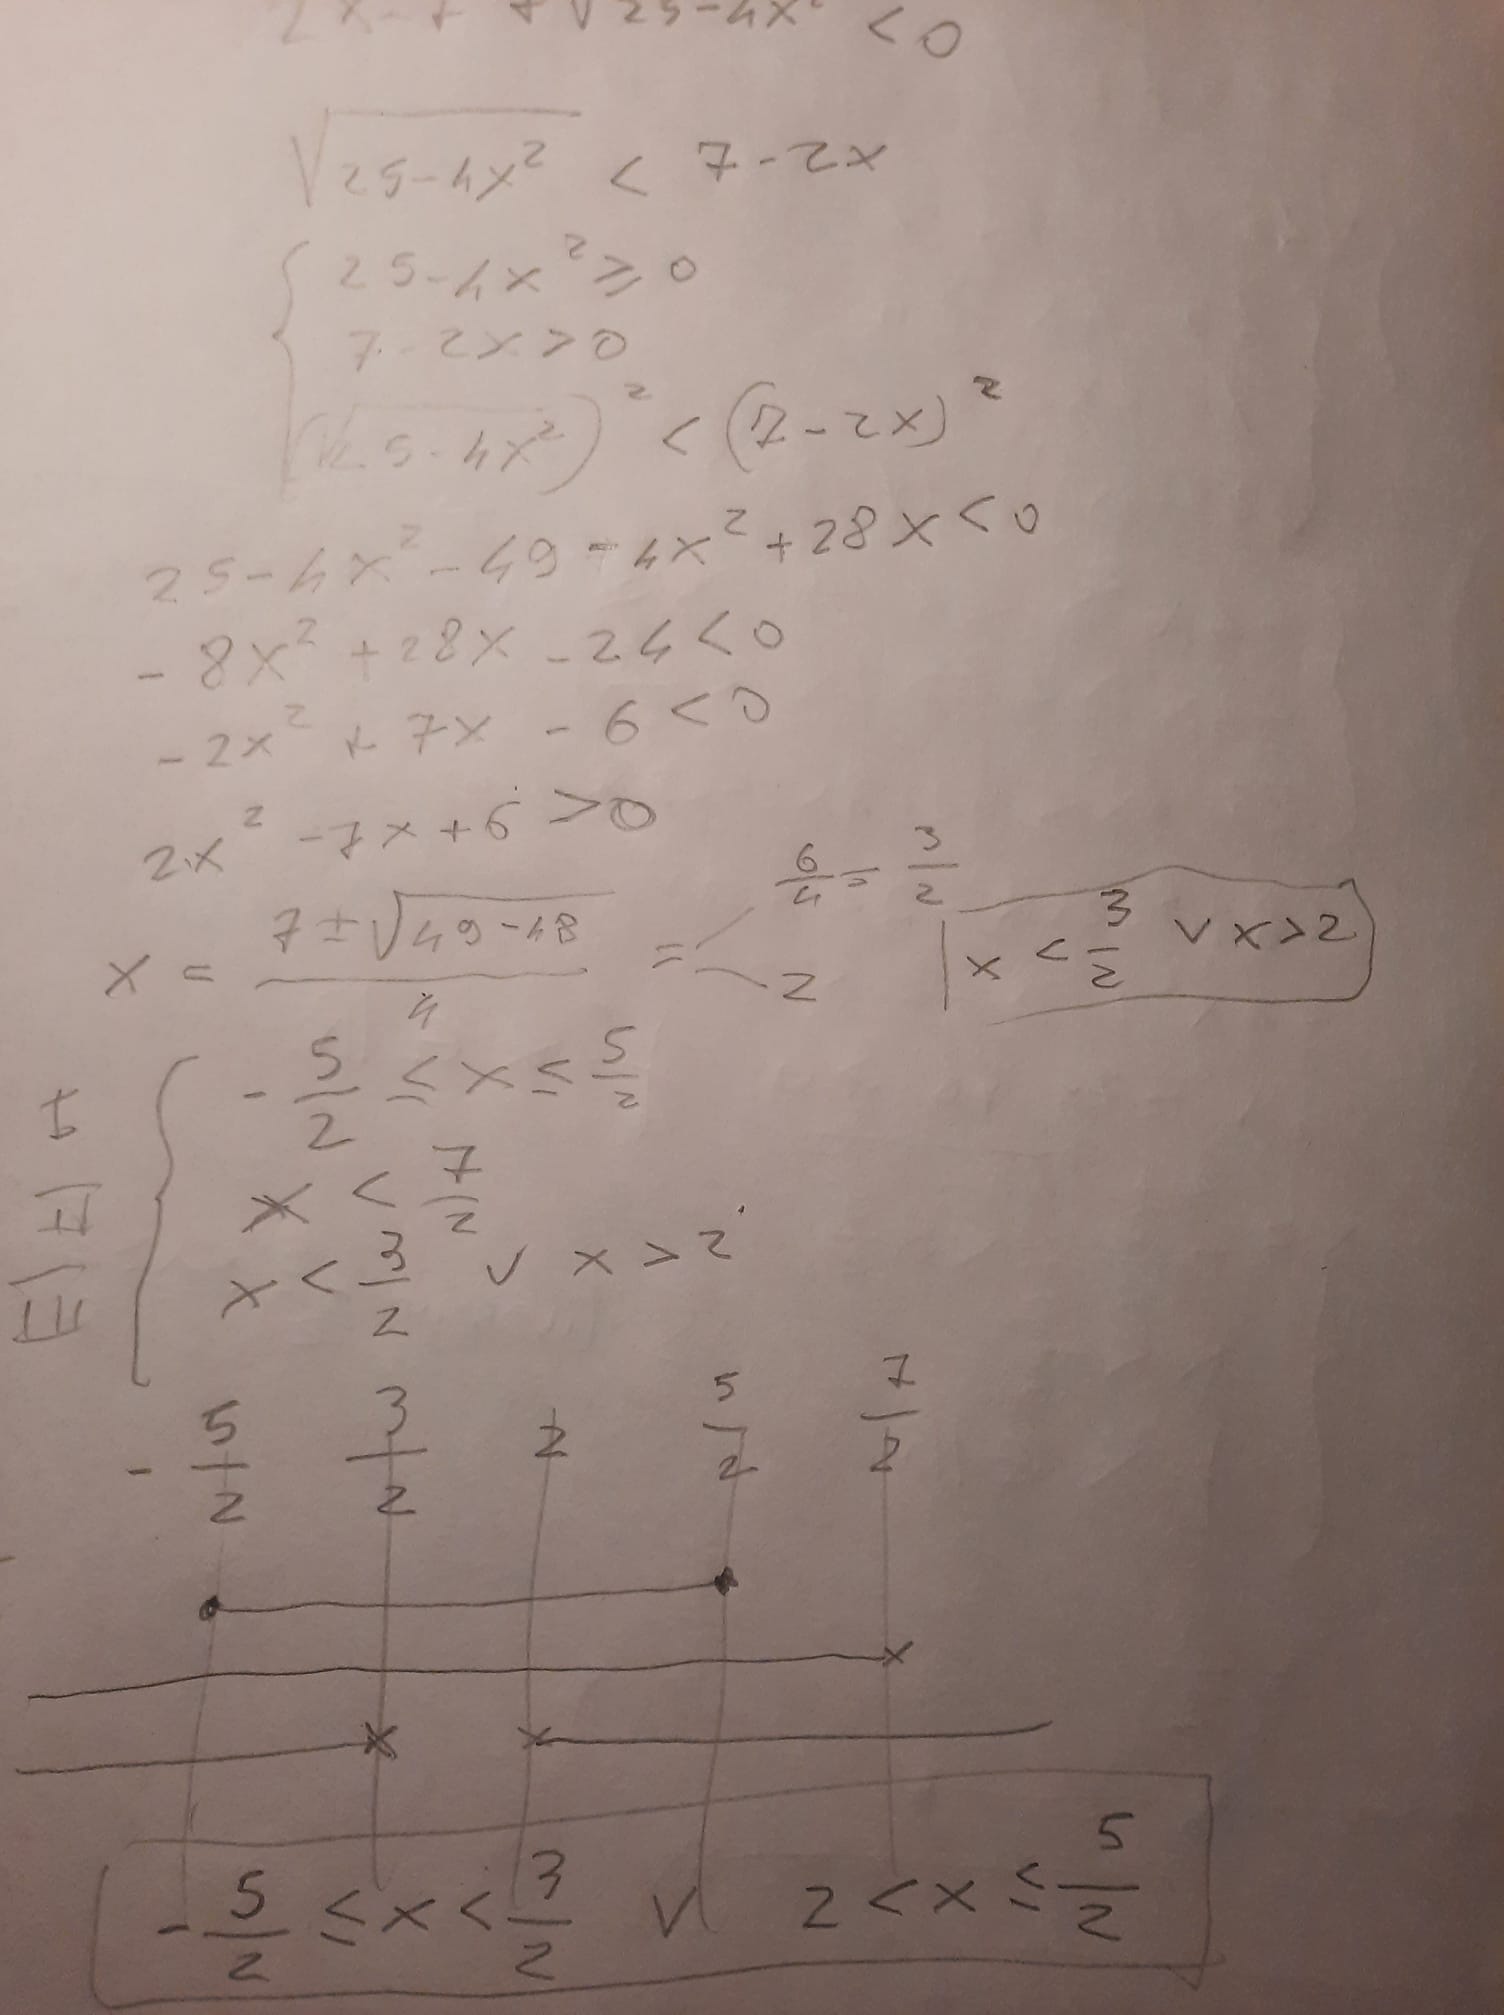 2x-7 + √25-4x² < 0
√25-4x² < 7-2x
25-4x² ≥ 0
7-2x > 0
(√25-4x²)² < (7-2x)²
25-4x²-49-4x²+28x<0
-8x²+28x-24<0
-2x²+7x-6<0
2x²-7x+6>0
x = 7±√49-48 / 4 = 6/4 = 3/2
2
x < 3/2 ∨ x>2
-5/2 ≤ x ≤ 5/2
x < 7/2
x < 3/2 ∨ x > 2
-5/2 3/2 2 5/2 7/2
-5/2 ≤ x < 3/2 ∨ 2 < x ≤ 5/2